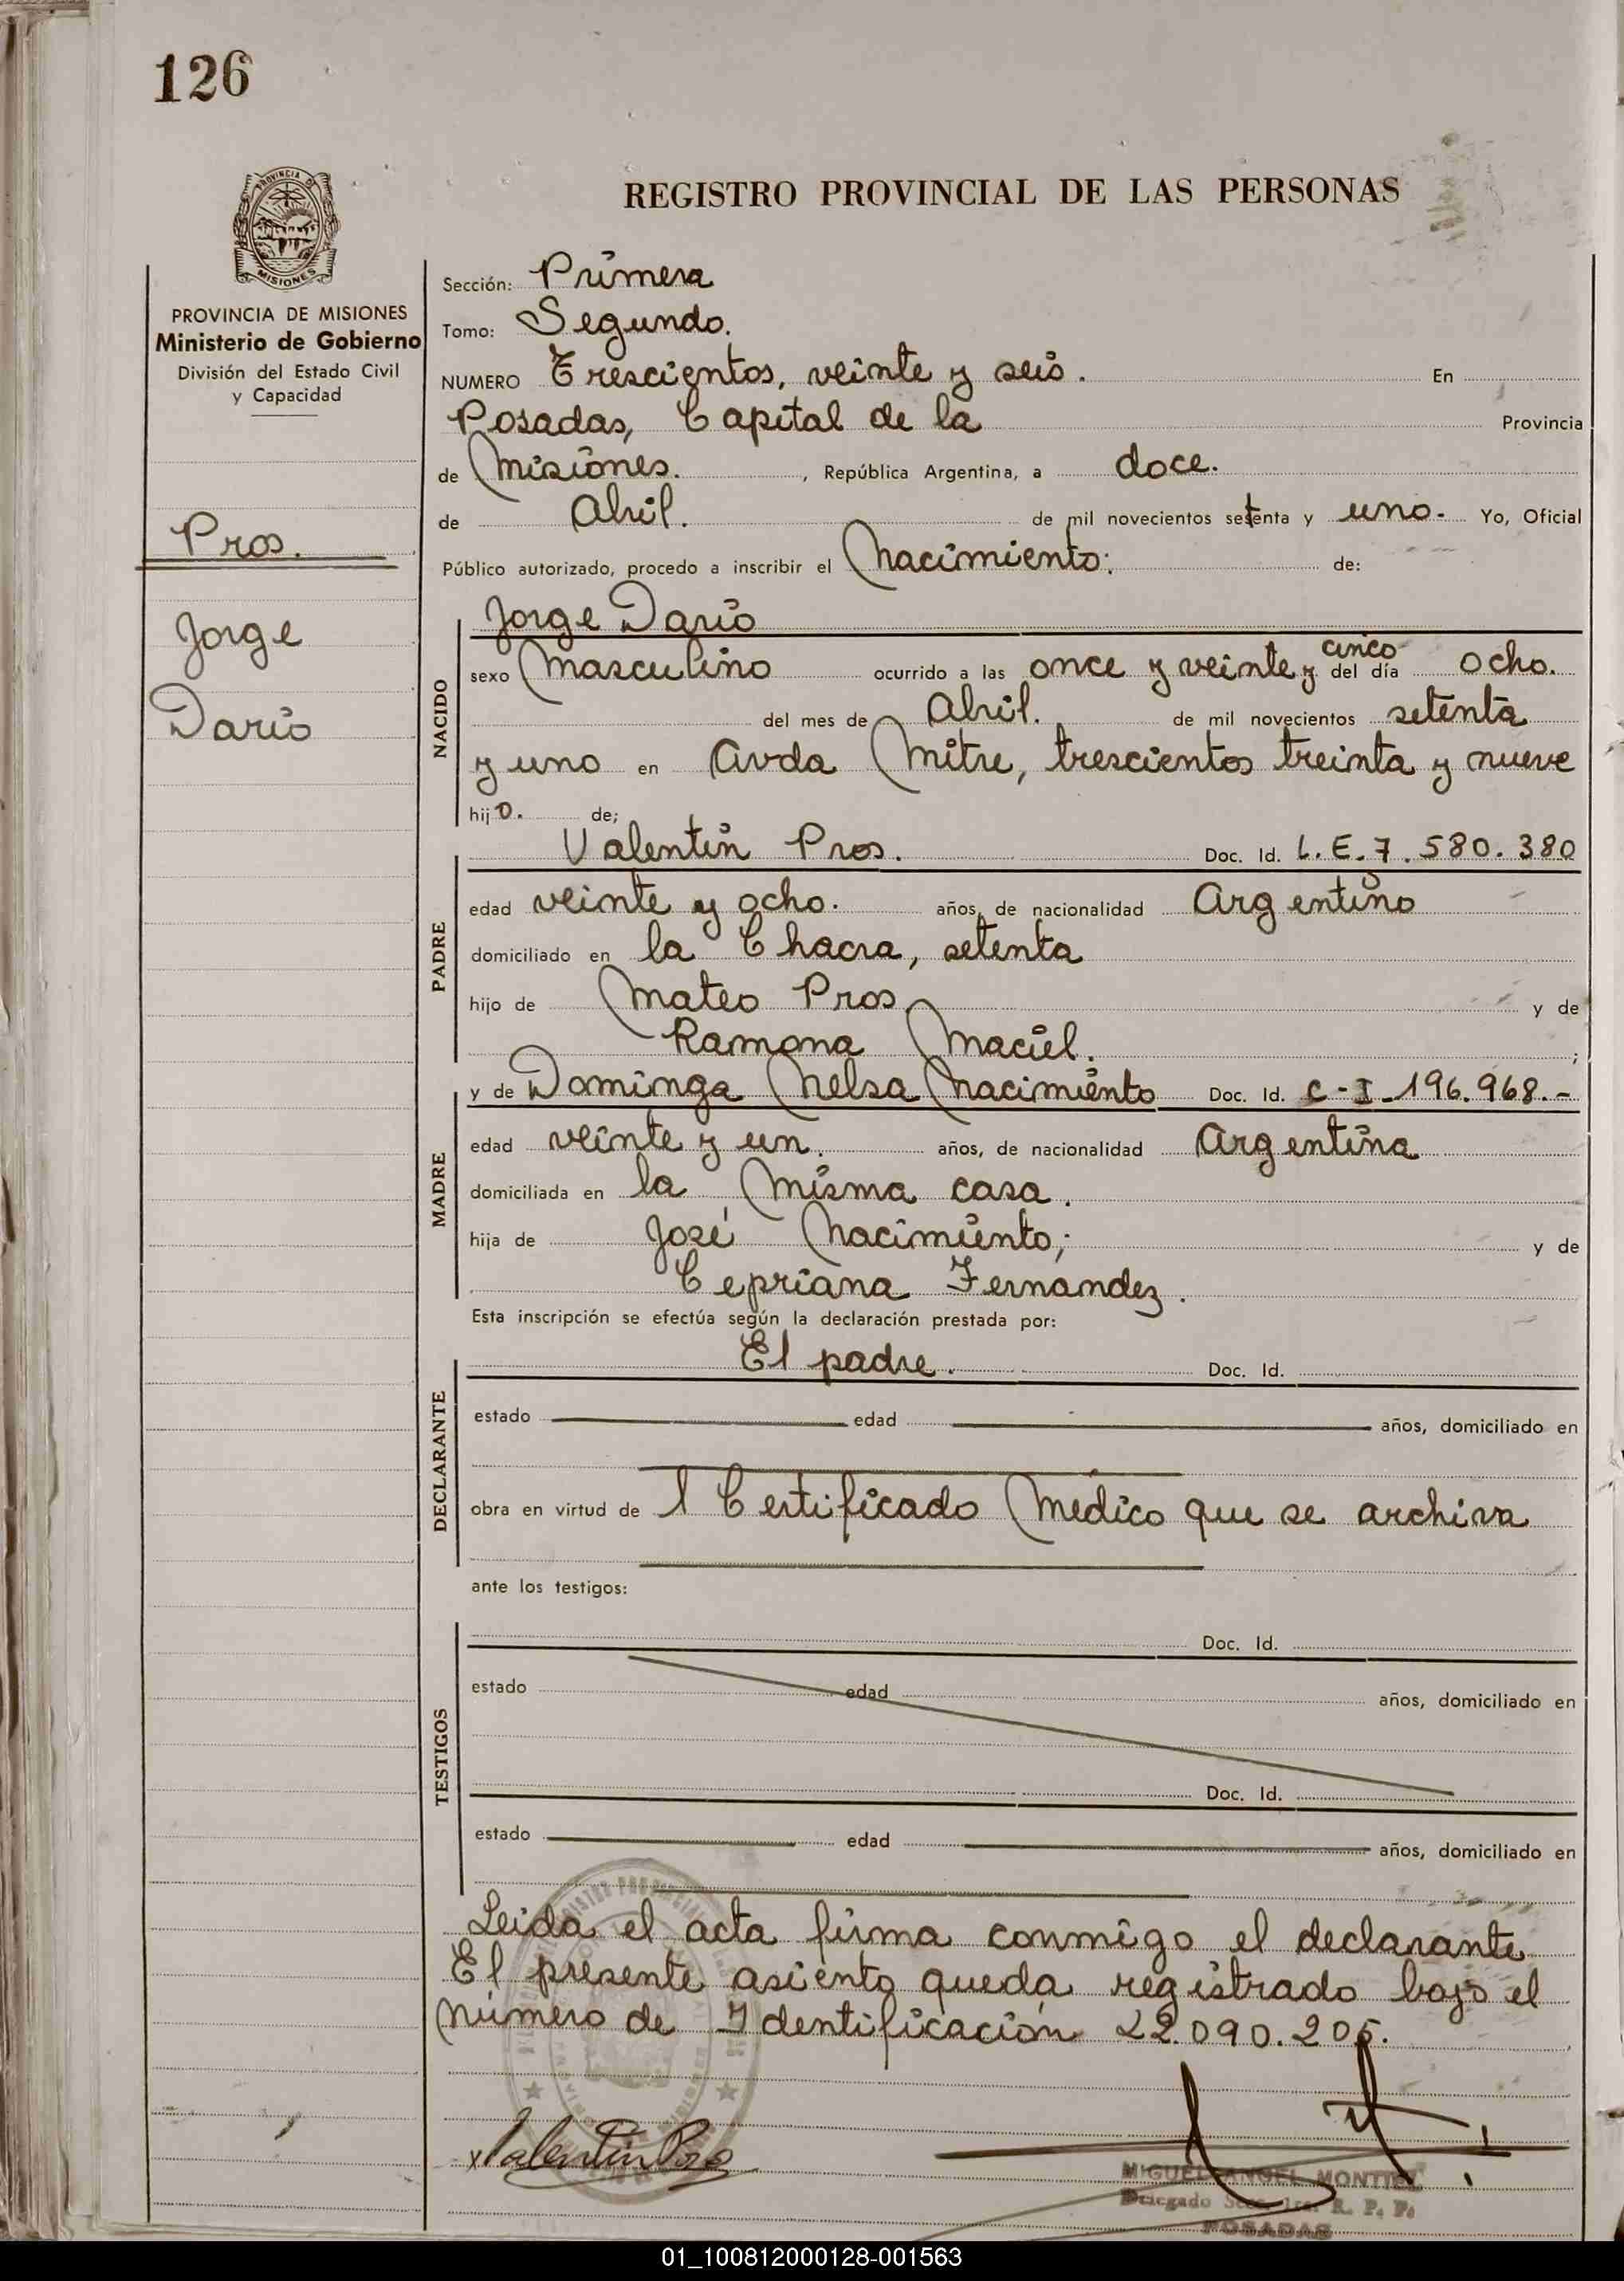 126
PROVINCIA DE
MISIONES
PROVINCIA DE MISIONES
Ministerio de Gobierno
División del Estado Civil
y Capacidad
Pros.
Jorge
Dario
REGISTRO PROVINCIAL DE LAS PERSONAS
Sección: Primera
Tomo: Segundo.
NUMERO Trescientos, veinte y seis. En
Posadas, Capital de la Provincia
de Misiones. , República Argentina, a doce.
de Abril. de mil novecientos setenta y uno. Yo, Oficial
Público autorizado, procedo a inscribir el Nacimiento: de:
NACIDO
Jorge Dario
sexo Masculino ocurrido a las once y veinte y cinco del día ocho.
del mes de Abril. de mil novecientos setenta
y uno en Avda Mitre, trescientos treinta y nueve
hijo. de;
PADRE
Valentin Pros. Doc. Id. L.E.7.580.380
edad veinte y ocho. años, de nacionalidad Argentino
domiciliado en la Chacra, setenta
hijo de Mateo Pros y de
Ramona Maciel. ;
MADRE
y de Dominga Nelsa Nacimiento Doc. Id. C-I-196.968.-
edad veinte y un. años, de nacionalidad Argentina
domiciliada en la misma casa.
hija de José Nacimiento; y de
Cepriana Fernandez.
Esta inscripción se efectúa según la declaración prestada por:
DECLARANTE
El padre. Doc. Id.
estado edad años, domiciliado en
obra en virtud de 1 Certificado Medico que se archiva
ante los testigos:
TESTIGOS
Doc. Id.
estado edad años, domiciliado en
Doc. Id.
estado edad años, domiciliado en
Leida el acta firma conmigo el declarante
El presente asiento queda registrado bajo el
número de Identificación 22.090.205.
Valentin Pros
MIGUEL ANGEL MONTIEL
Delegado Secc. 1ra. R. P. P.
POSADAS
01_100812000128-001563